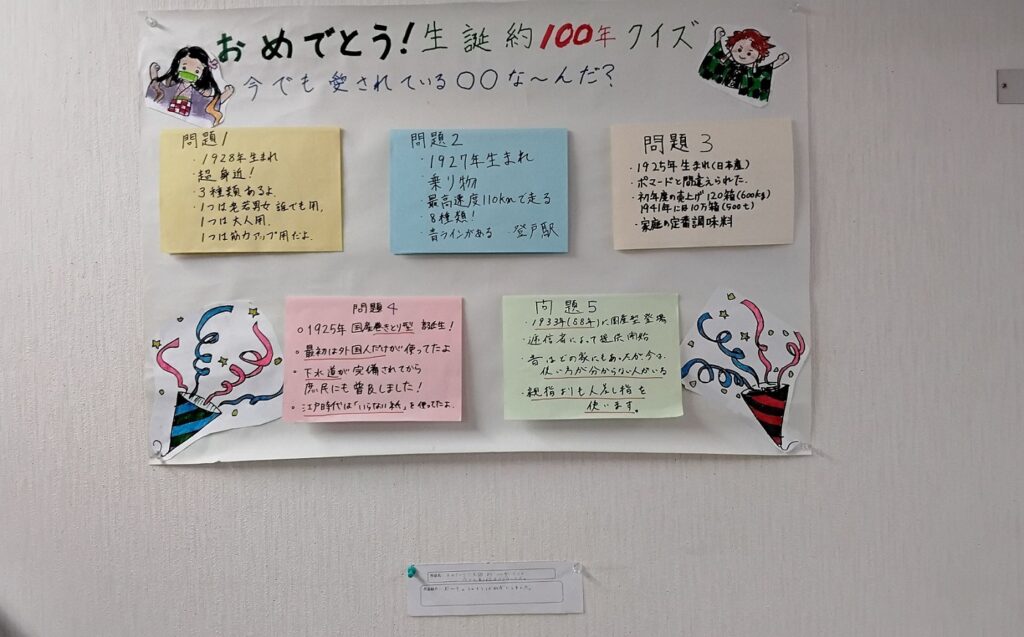 おめでとう!生誕約100年クイズ
今でも愛されている〇〇な〜んだ?
問題1
・1928年生まれ
・超身近!
・3種類あるよ
・1つは老若男女誰でも用、
1つは大人用、
1つは筋力アップ用だよ。
問題2
・1927年生まれ
・乗り物
・最高速度110kmで走る
・8種類!
・青ラインがある ・登戸駅
問題3
・1925年生まれ(日本産)
・ポマードと間違えられた。
・初年度の売上げ120箱(600kg)
1941年には10万箱(500t)
・家庭の定番調味料
問題4
○1925年 国産巻きとり型 誕生!
○最初は外国人だけが使ってたよ
○下水道が完備されてから
庶民にも普及しました!
○江戸時代は「いらない紙」を使ってたよ。
問題5
・1933年(S8年)に国産型登場
・逓信省によって提供開始
・昔はどの家にもあったが今は、
使い方が分からない人がいる
・親指よりも人差し指を
使います。